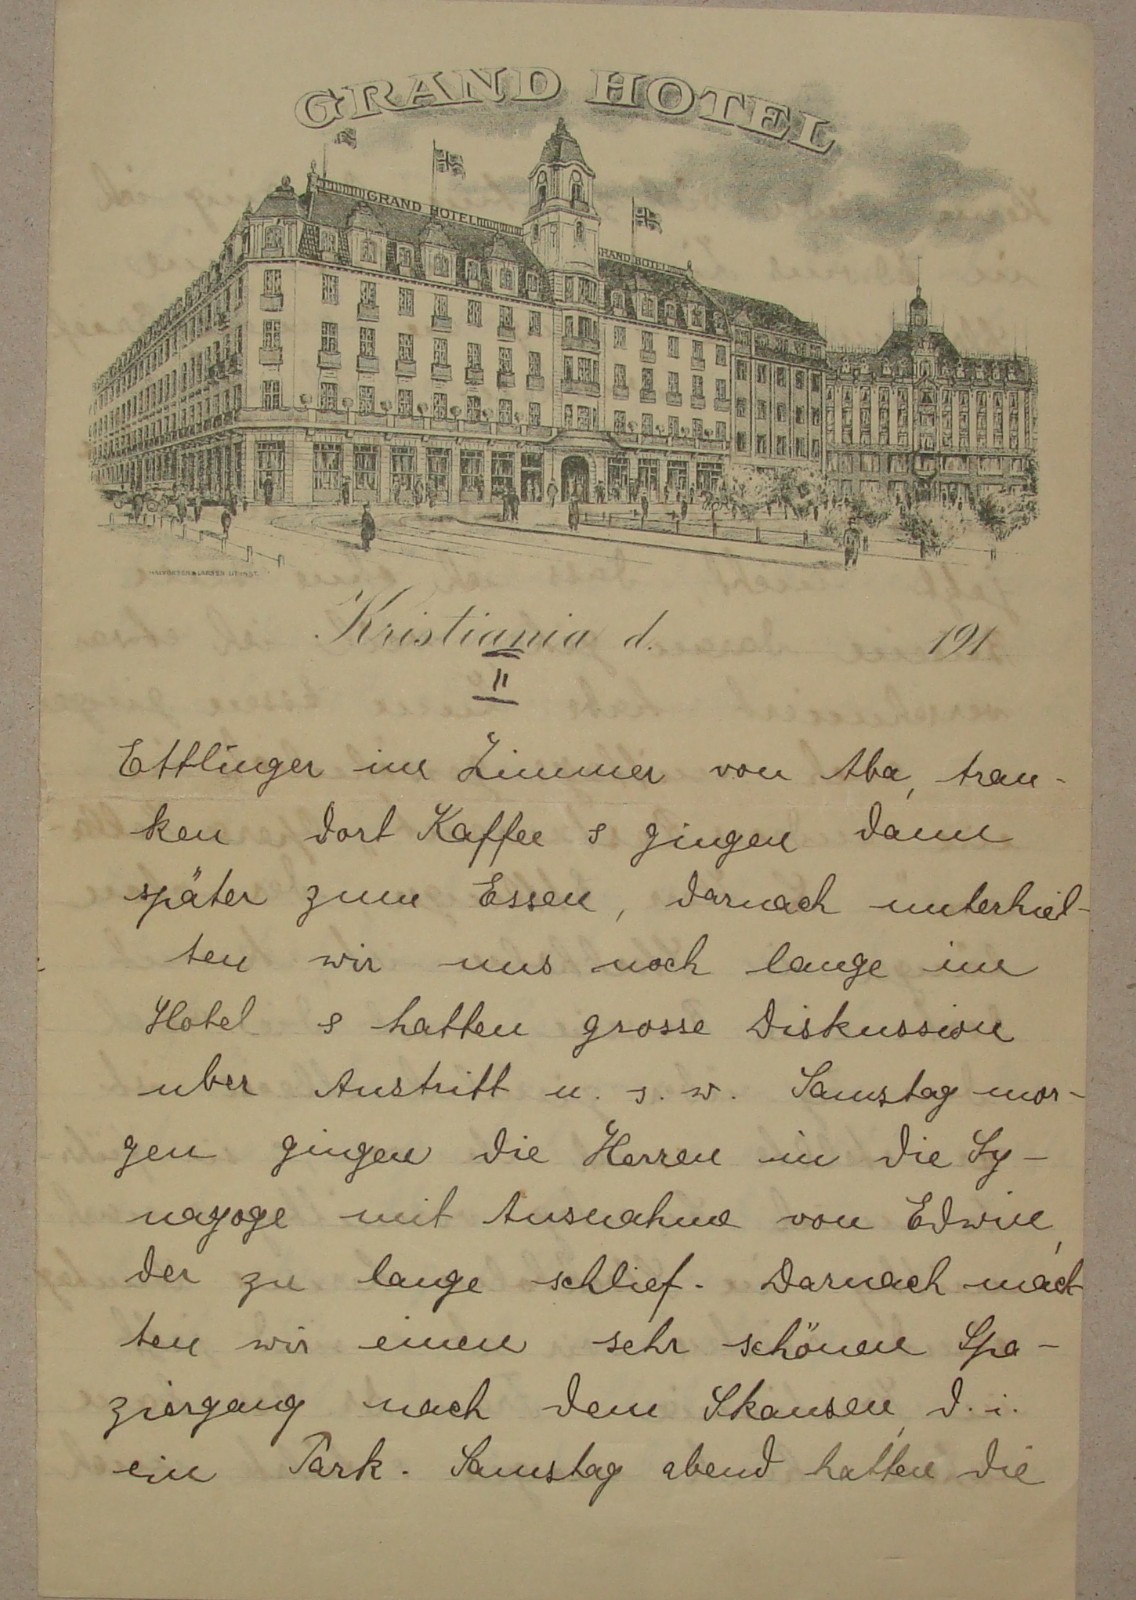 GRAND HOTEL
GRAND HOTEL
GRAND HOTEL
Kristiania d. 191
II
Ettlinger im Zimmer von Aba, tran-
ken dort Kaffee & gingen dann
später zum Essen, darnach unterhiel-
ten wir uns noch lange im
Hotel & hatten grosse Diskussion
uber Austritt u. s. w. Samstag mor-
gen gingen die Herren in die Sy-
nagoge mit Ausnahme von Edwin,
der zu lange schlief. Darnach mach
ten wir einen sehr schönen Spa-
ziergang nach dem Skansen, d. i.
ein Park. Samstag abend hatten die